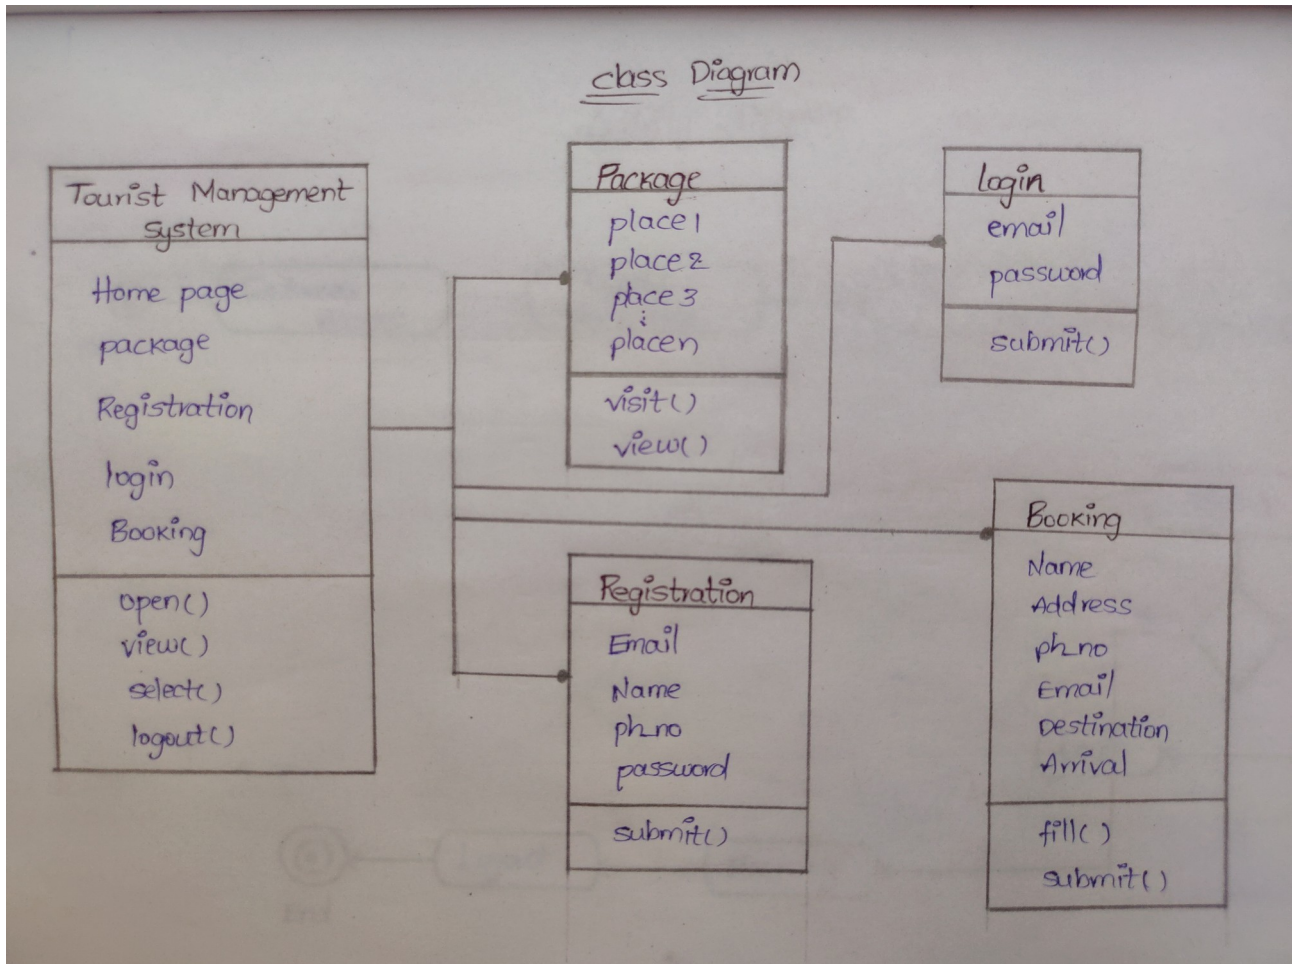 class Diagram
Tourist Management
System
Home page
package
Registration
login
Booking
open()
view()
select()
logout()
Package
place1
place2
place3
⋮
placen
visit()
view()
login
email
password
submit()
Registration
Email
Name
ph_no
password
submit()
Booking
Name
Address
ph_no
Email
Destination
Arrival
fill()
submit()
End